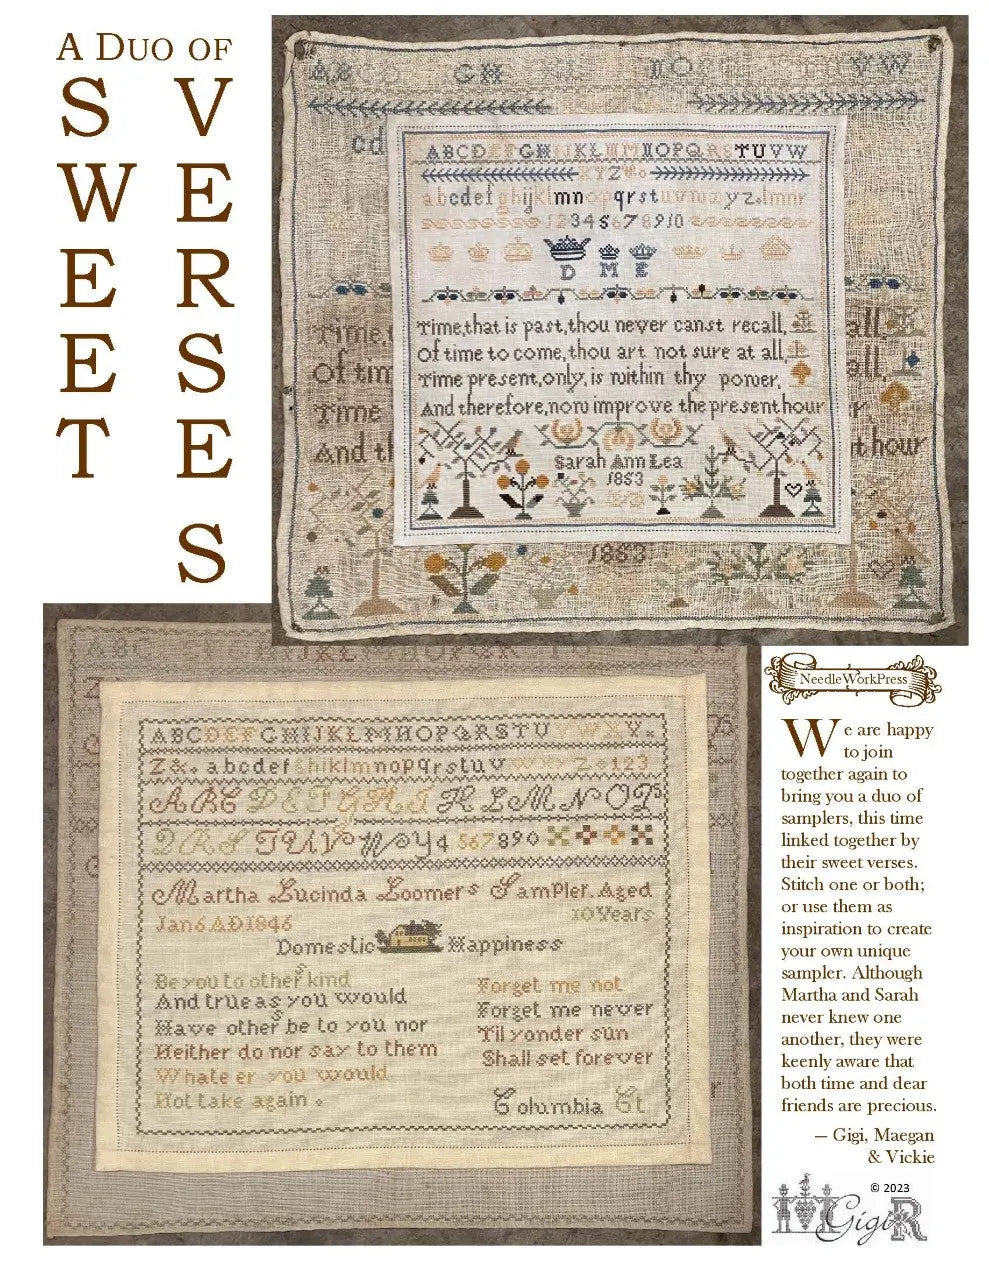 A Duo of
SWEET
VERSES
ABCD GH KL NOP VW
cd
ABCDEFGHIJKLMNOPQRSTUVW
XYZ
abcdefghijklmnopqrstuvwxyz.lmnr
12345678910
D M E
Time,that is past,thou never canst recall,
Of time to come,thou art not sure at all,
Time present,only,is within thy power,
And therefore,now improve the present hour
Sarah Ann Lea
1853
Time,
all,
Of tim
all,
Time
er
And th
t hour
1853
ABCDEFGHIJKLMNOPQRSTUVWXY
Z&.abcdefghiklmnopqrstuvwxyz 123
ABCDEFGHIJKLMNOP
QRSTUVWY4 567890
Martha Lucinda Loomers Sampler. Aged
10 Years
Jan6.AD1846
Domestic Happiness
Be you to others kind
And true as you would
Have others be to you nor
Neither do nor say to them
Whate er you would
Not take again.
Forget me not
Forget me never
Til yonder sun
Shall set forever
Columbia Ct
NeedleWorkPress
We are happy
to join
together again to
bring you a duo of
samplers, this time
linked together by
their sweet verses.
Stitch one or both;
or use them as
inspiration to create
your own unique
sampler. Although
Martha and Sarah
never knew one
another, they were
keenly aware that
both time and dear
friends are precious.
— Gigi, Maegan
& Vickie
© 2023
Gigi R